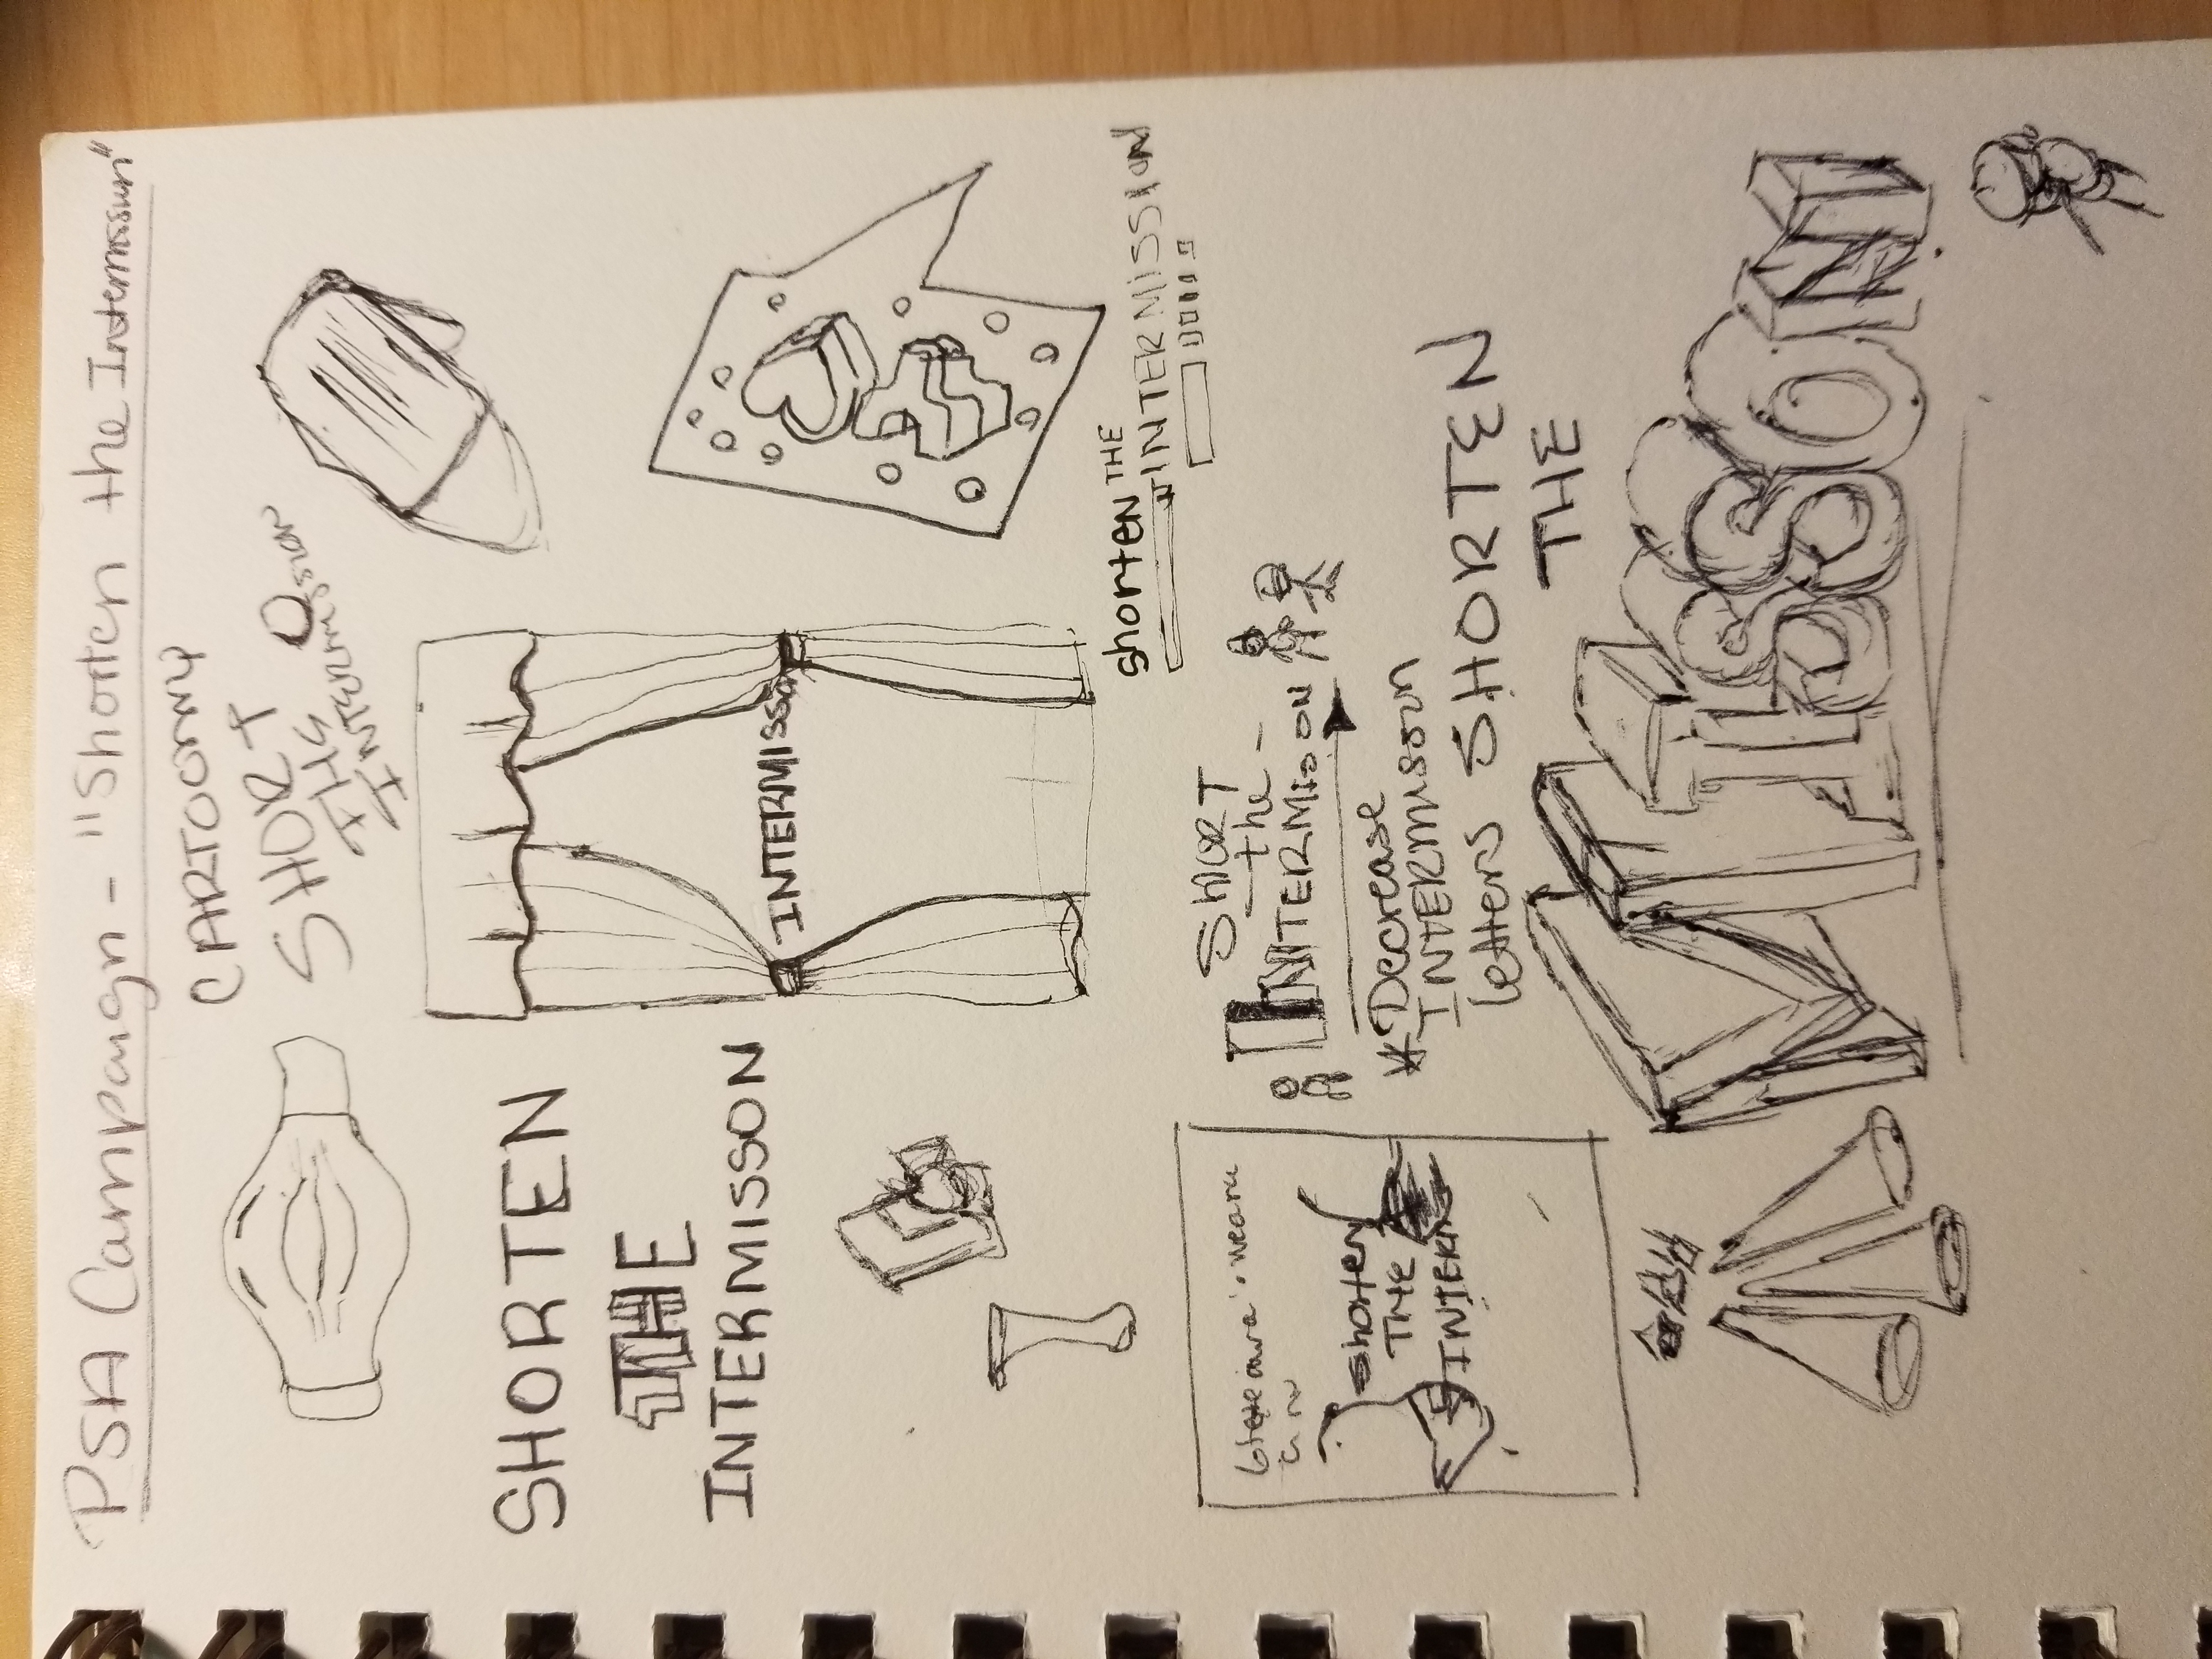 PSA Campaign - "Shorten the Intermission"
CARTOONY
SHORT
THE
INTERMISSION
SHORTEN
THE
INTERMISSON
INTERMISSON
shorten THE
INTERMISSION
SHORT
the -
INTERMISION
*Decrease
INTERMISSON
letters
SHORTEN
THE
INTERN
SHORTEN
THE
MISSON